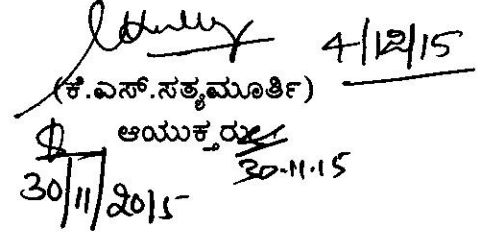 4/12/15
(ಕೆ.ಎಸ್.ಸತ್ಯಮೂರ್ತಿ)
ಆಯುಕ್ತರು
30.11.15
30/11/2015